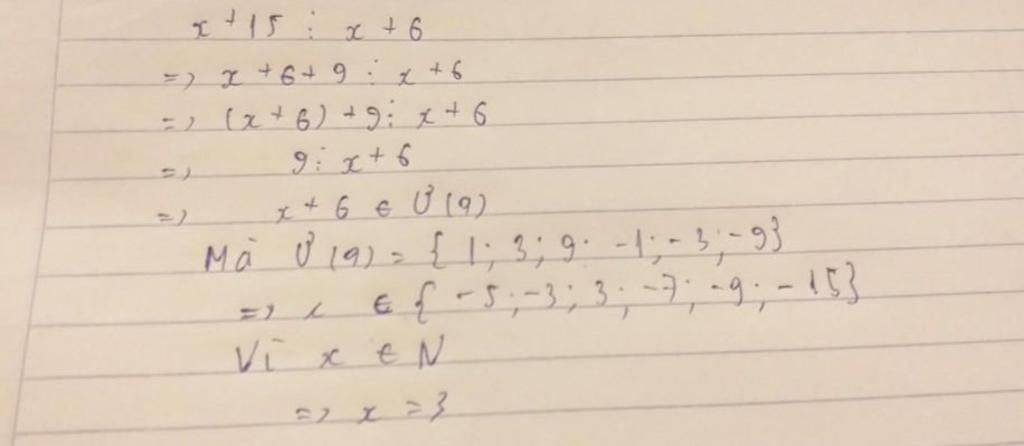 x + 15 ⋮ x + 6
=> x + 6 + 9 ⋮ x + 6
=> (x + 6) + 9 ⋮ x + 6
=> 9 ⋮ x + 6
=> x + 6 ∈ Ư(9)
Mà Ư(9) = { 1; 3; 9; -1; -3; -9}
=> x ∈ { -5; -3; 3; -7; -9; -15}
Vì x ∈ N
=> x = 3